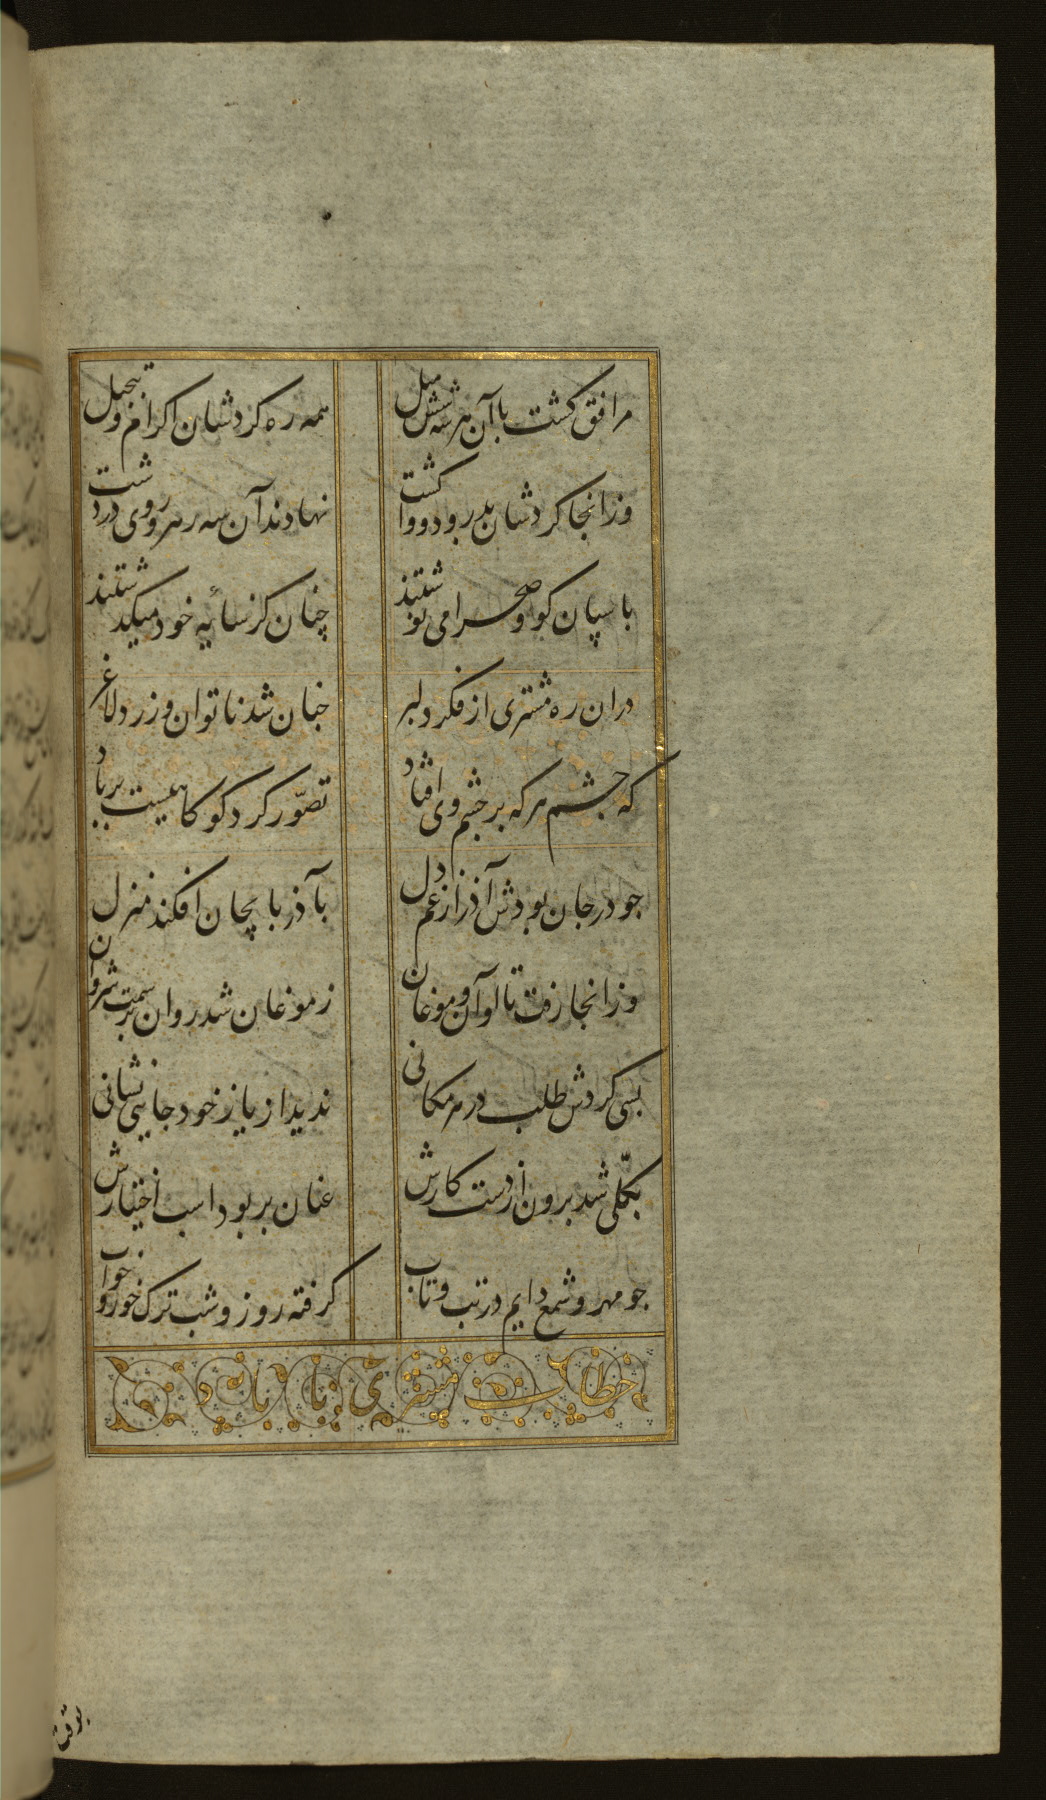 مرافق کشت با آن هر سه شش میل
همه ره کردشان اکرام و تبجیل
وزانجا کردشان بدرود و وا کشت
نهادند آن سه رهرو روی در دشت
باسپان کوه و صحرا می نوشتند
چنان کز سائه خود میکدشتند
دران ره مشتری از فکر دلبر
جنان شد ناتوان و زرد و لاغر
که جشم هر که بر جشم وی افتاد
تصوّر کرد کو کاهیست بر باد
جو در جان بودش آذر از غم دل
بآذربایجان افکند منزل
وزانجا رفت تا لوآن و موغان
زموغان شد روان بر سمت شروان
بسی کردش طلب در هر مکانی
ندید از یار خود جایی نشانی
بکلّی شد برون از دست کارش
عنان بربود اسب اختیارش
جو مهر و شمع دایم در تب و تاب
کرفته روز و شب ترک خور و خواب
خطاب مشتری با باد
بوقت